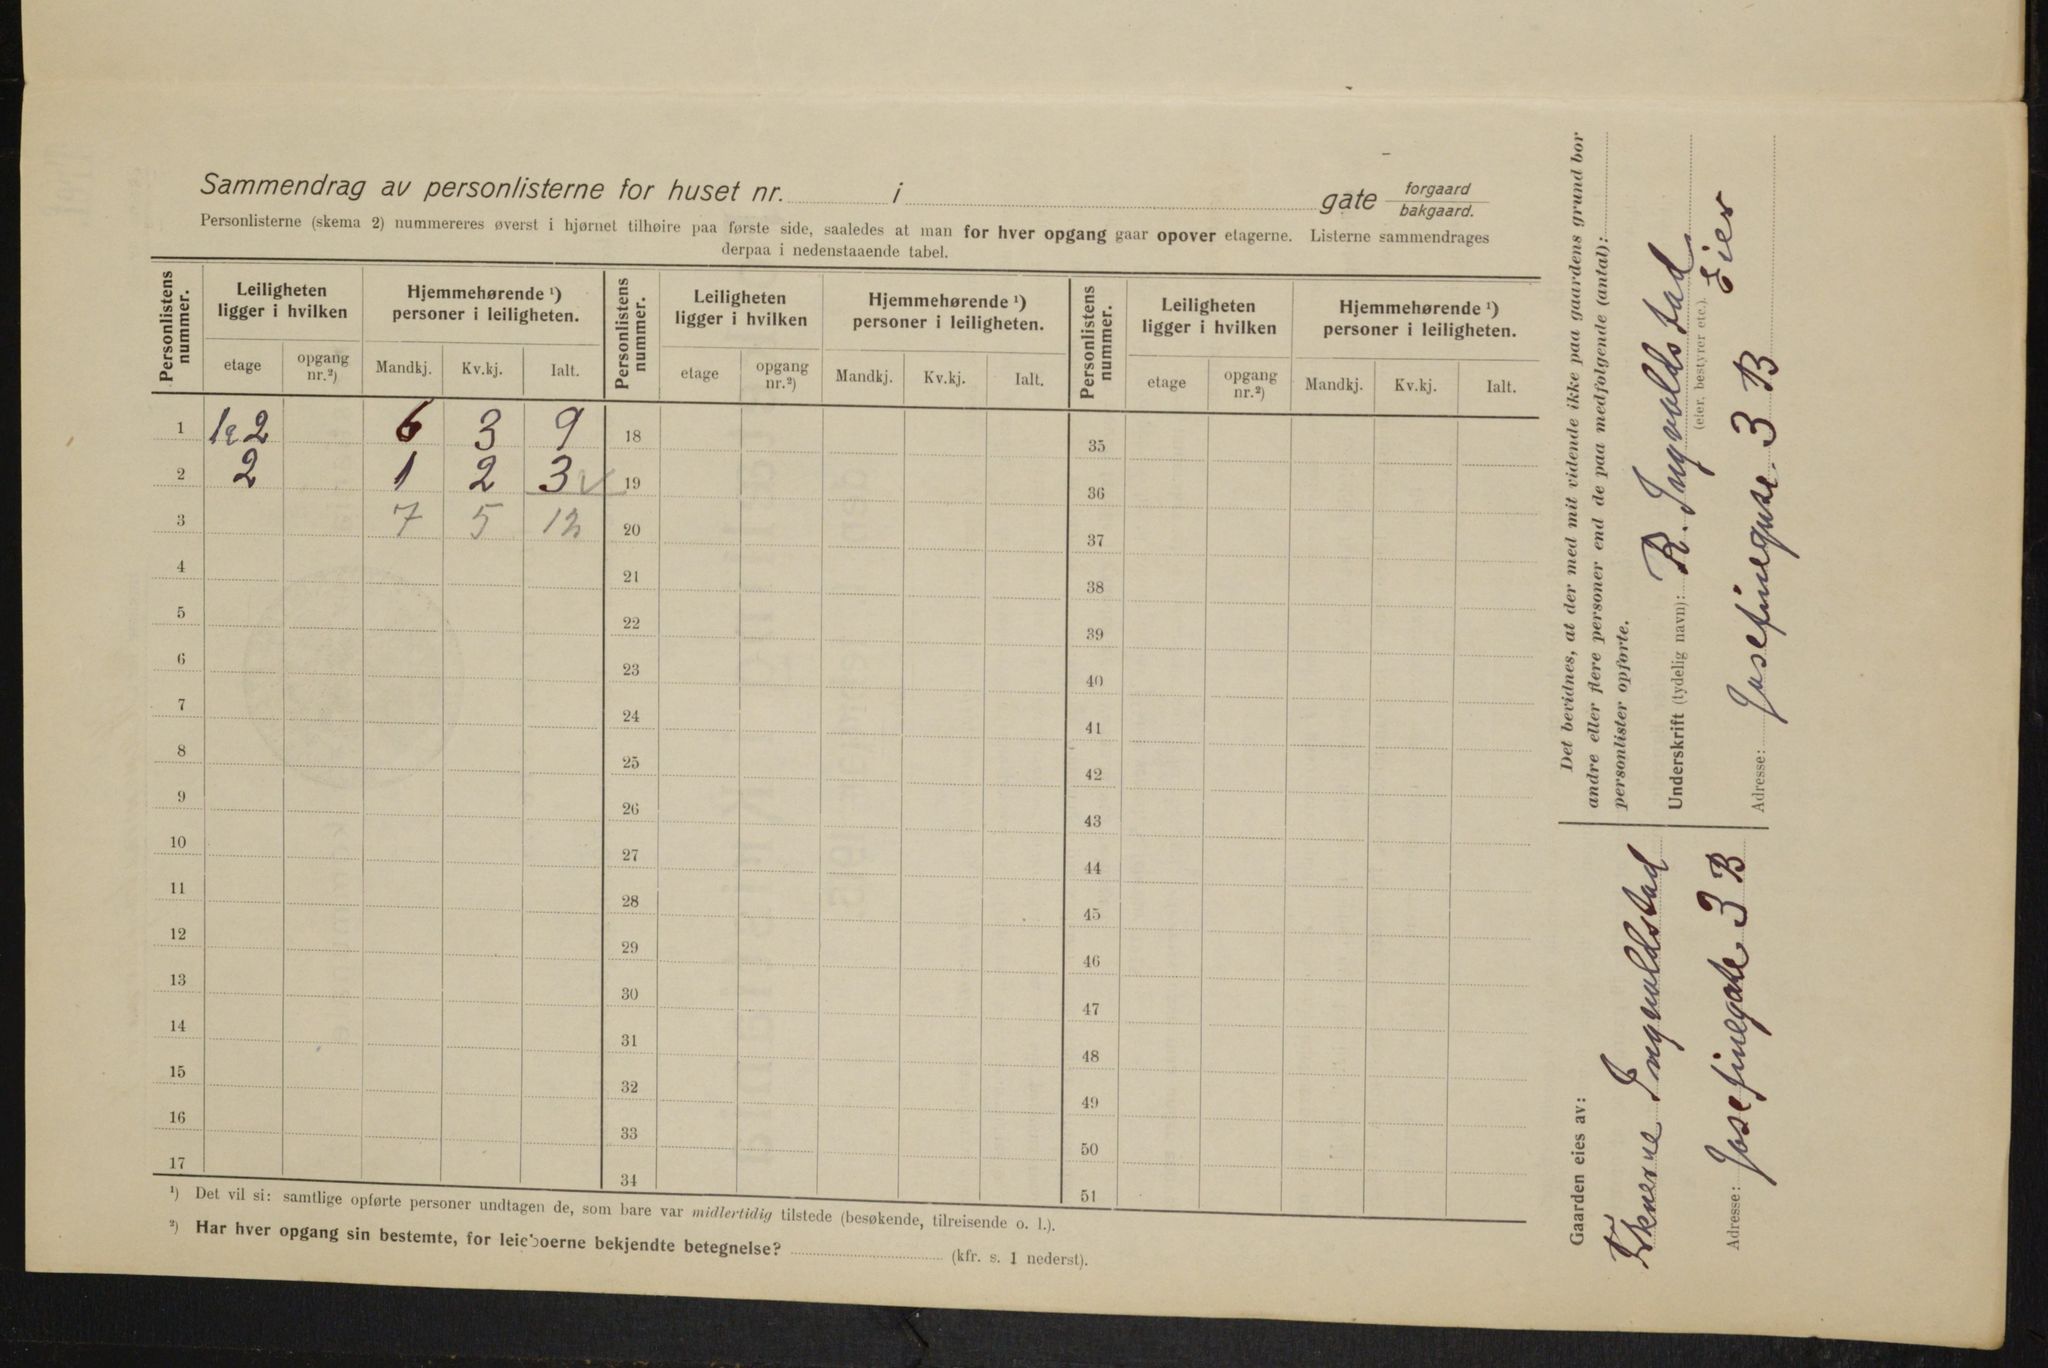 Sammendrag av personlisterne for huset nr. i gate forgaard bakgaard.
Personlisterne (skema 2) nummereres øverst i hjørnet tilhøire paa første side, saaledes at man for hver opgang gaar opover etagerne. Listerne sammendrages
derpaa i nedenstaaende tabel.
Personlistens nummer. Leiligheten ligger i hvilken Hjemmehørende ¹) personer i leiligheten. Personlistens nummer. Leiligheten ligger i hvilken Hjemmehørende ¹) personer i leiligheten. Personlistens nummer. Leiligheten ligger i hvilken Hjemmehørende ¹) personer i leiligheten.
etage opgang nr.²) Mandkj. Kv.kj. Ialt. etage opgang nr.²) Mandkj. Kv.kj. Ialt. etage opgang nr.²) Mandkj. Kv.kj. Ialt.
1 2 6 3 9 18 35
2 2 1 2 3 19 36
3 7 5 12 20 37
4 21 38
5 22 39
6 23 40
7 24 41
8 25 42
9 26 43
10 27 44
11 28 45
12 29 46
13 30 47
14 31 48
15 32 49
16 33 50
17 34 51
¹) Det vil si: samtlige opførte personer undtagen de, som bare var midlertidig tilstede (besøkende, tilreisende o. l.).
²) Har hver opgang sin bestemte, for leieboerne bekjendte betegnelse? (kfr. s. 1 nederst).
Gaarden eies av:
Ingvoldstad
Adresse: Josefinegate 3 B
Det bevidnes, at der med mit vidende ikke paa gaardens grund bor
andre eller flere personer end de paa medfølgende (antal):
personlister opførte.
Underskrift (tydelig navn): R. Ingvoldstad
(eier, bestyrer etc.). Eier
Adresse: Josefinegate 3 B